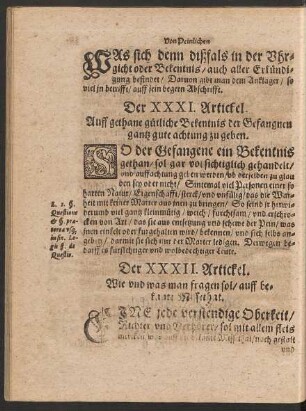 Von Peinlichen
WAs sich denn dißfals in der Vhr-
gicht oder Bekentnis / auch aller Erkündi-
gung befindet / Daruon gibt man dem Ankläger / so
viel jn betrifft / auff sein begern Abschrifft.
Der XXXI. Artickel.
Auff gethane gütliche Bekentnis der Gefangnen
gantz gute achtung zu geben.
SO der Gefangene ein Bekentnis
gethan / sol gar vorsichtiglich gehandelt /
und auff achtung geben werden / ob derselben zu glau
ben sey oder nicht / Sintemal viel Personen einer so
harten Natur / Eigenschafft / sterck / und vnfülig / das die War-
heit mit keiner Marter aus jnen zu bringen / So seind je herwi-
derumb viel gantz kleinmütig / weich / forchtsam / und erschro-
cken von Art / das sie aus entsetzung vnd schewe der Pein / was
jnen einfelt oder fürgehalten wird / bekennen / und sich selbs an-
geben / darmit sie sich nur der Marter ledigen. Derwegen be-
darff es fürsichtiger und wolbedechtiger Leute.
l. 1. §.
Questioni
Legũ §
Questio.
Der XXXII. Artickel.
Wie und was man fragen sol / auff be-
kante Missethat.
EINE jede verstendige Oberkeit /
Richter und Verhörer / sol mit allem fleis
und